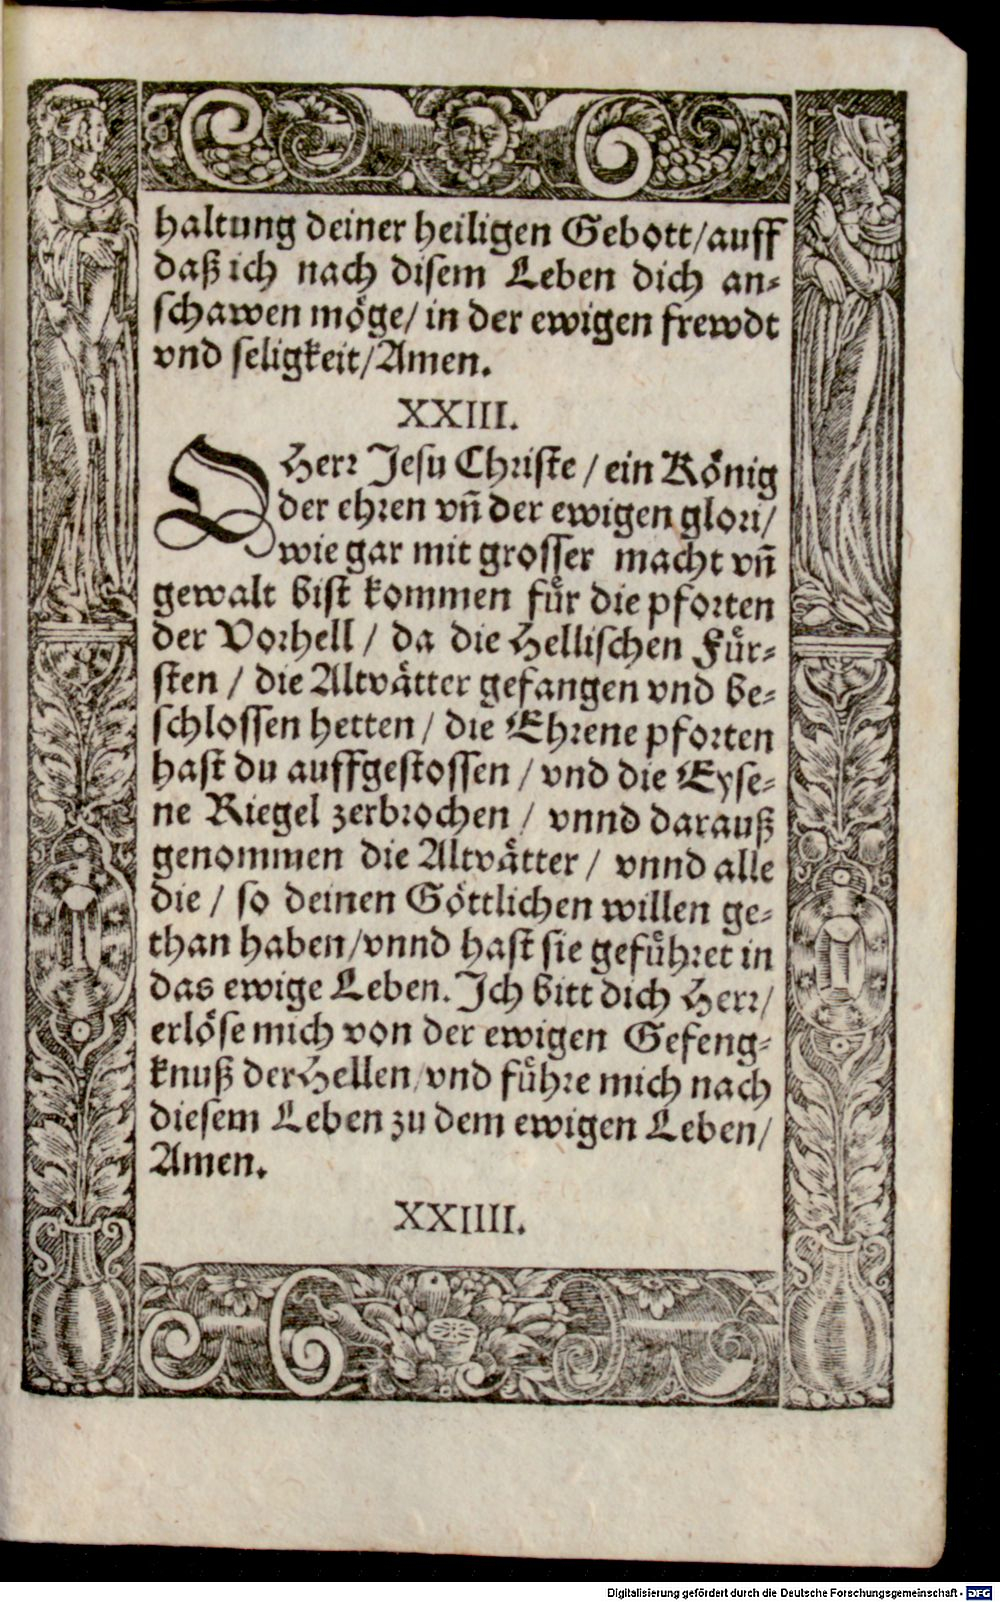 haltung deiner heiligen Gebott/auff
daß ich nach disem Leben dich an⸗
schawen möge/ in der ewigen frewdt
vnd seligkeit/Amen.
XXIII.
O Herr Jesu Christe / ein König
der ehren vñ der ewigen glori/
wie gar mit grosser macht vñ
gewalt bist kommen für die pforten
der Vorhell / da die Hellischen Für⸗
sten / die Altvätter gefangen vnd be⸗
schlossen hetten / die Ehrene pforten
hast du auffgestossen / vnd die Eyse⸗
ne Riegel zerbrochen / vnnd darauß
genommen die Altvätter / vnnd alle
die / so deinen Göttlichen willen ge⸗
than haben/vnnd hast sie geführet in
das ewige Leben. Ich bitt dich Herr/
erlöse mich von der ewigen Gefeng⸗
knuß der Hellen/vnd führe mich nach
diesem Leben zu dem ewigen Leben/
Amen.
XXIIII.
Digitalisierung gefördert durch die Deutsche Forschungsgemeinschaft - DFG